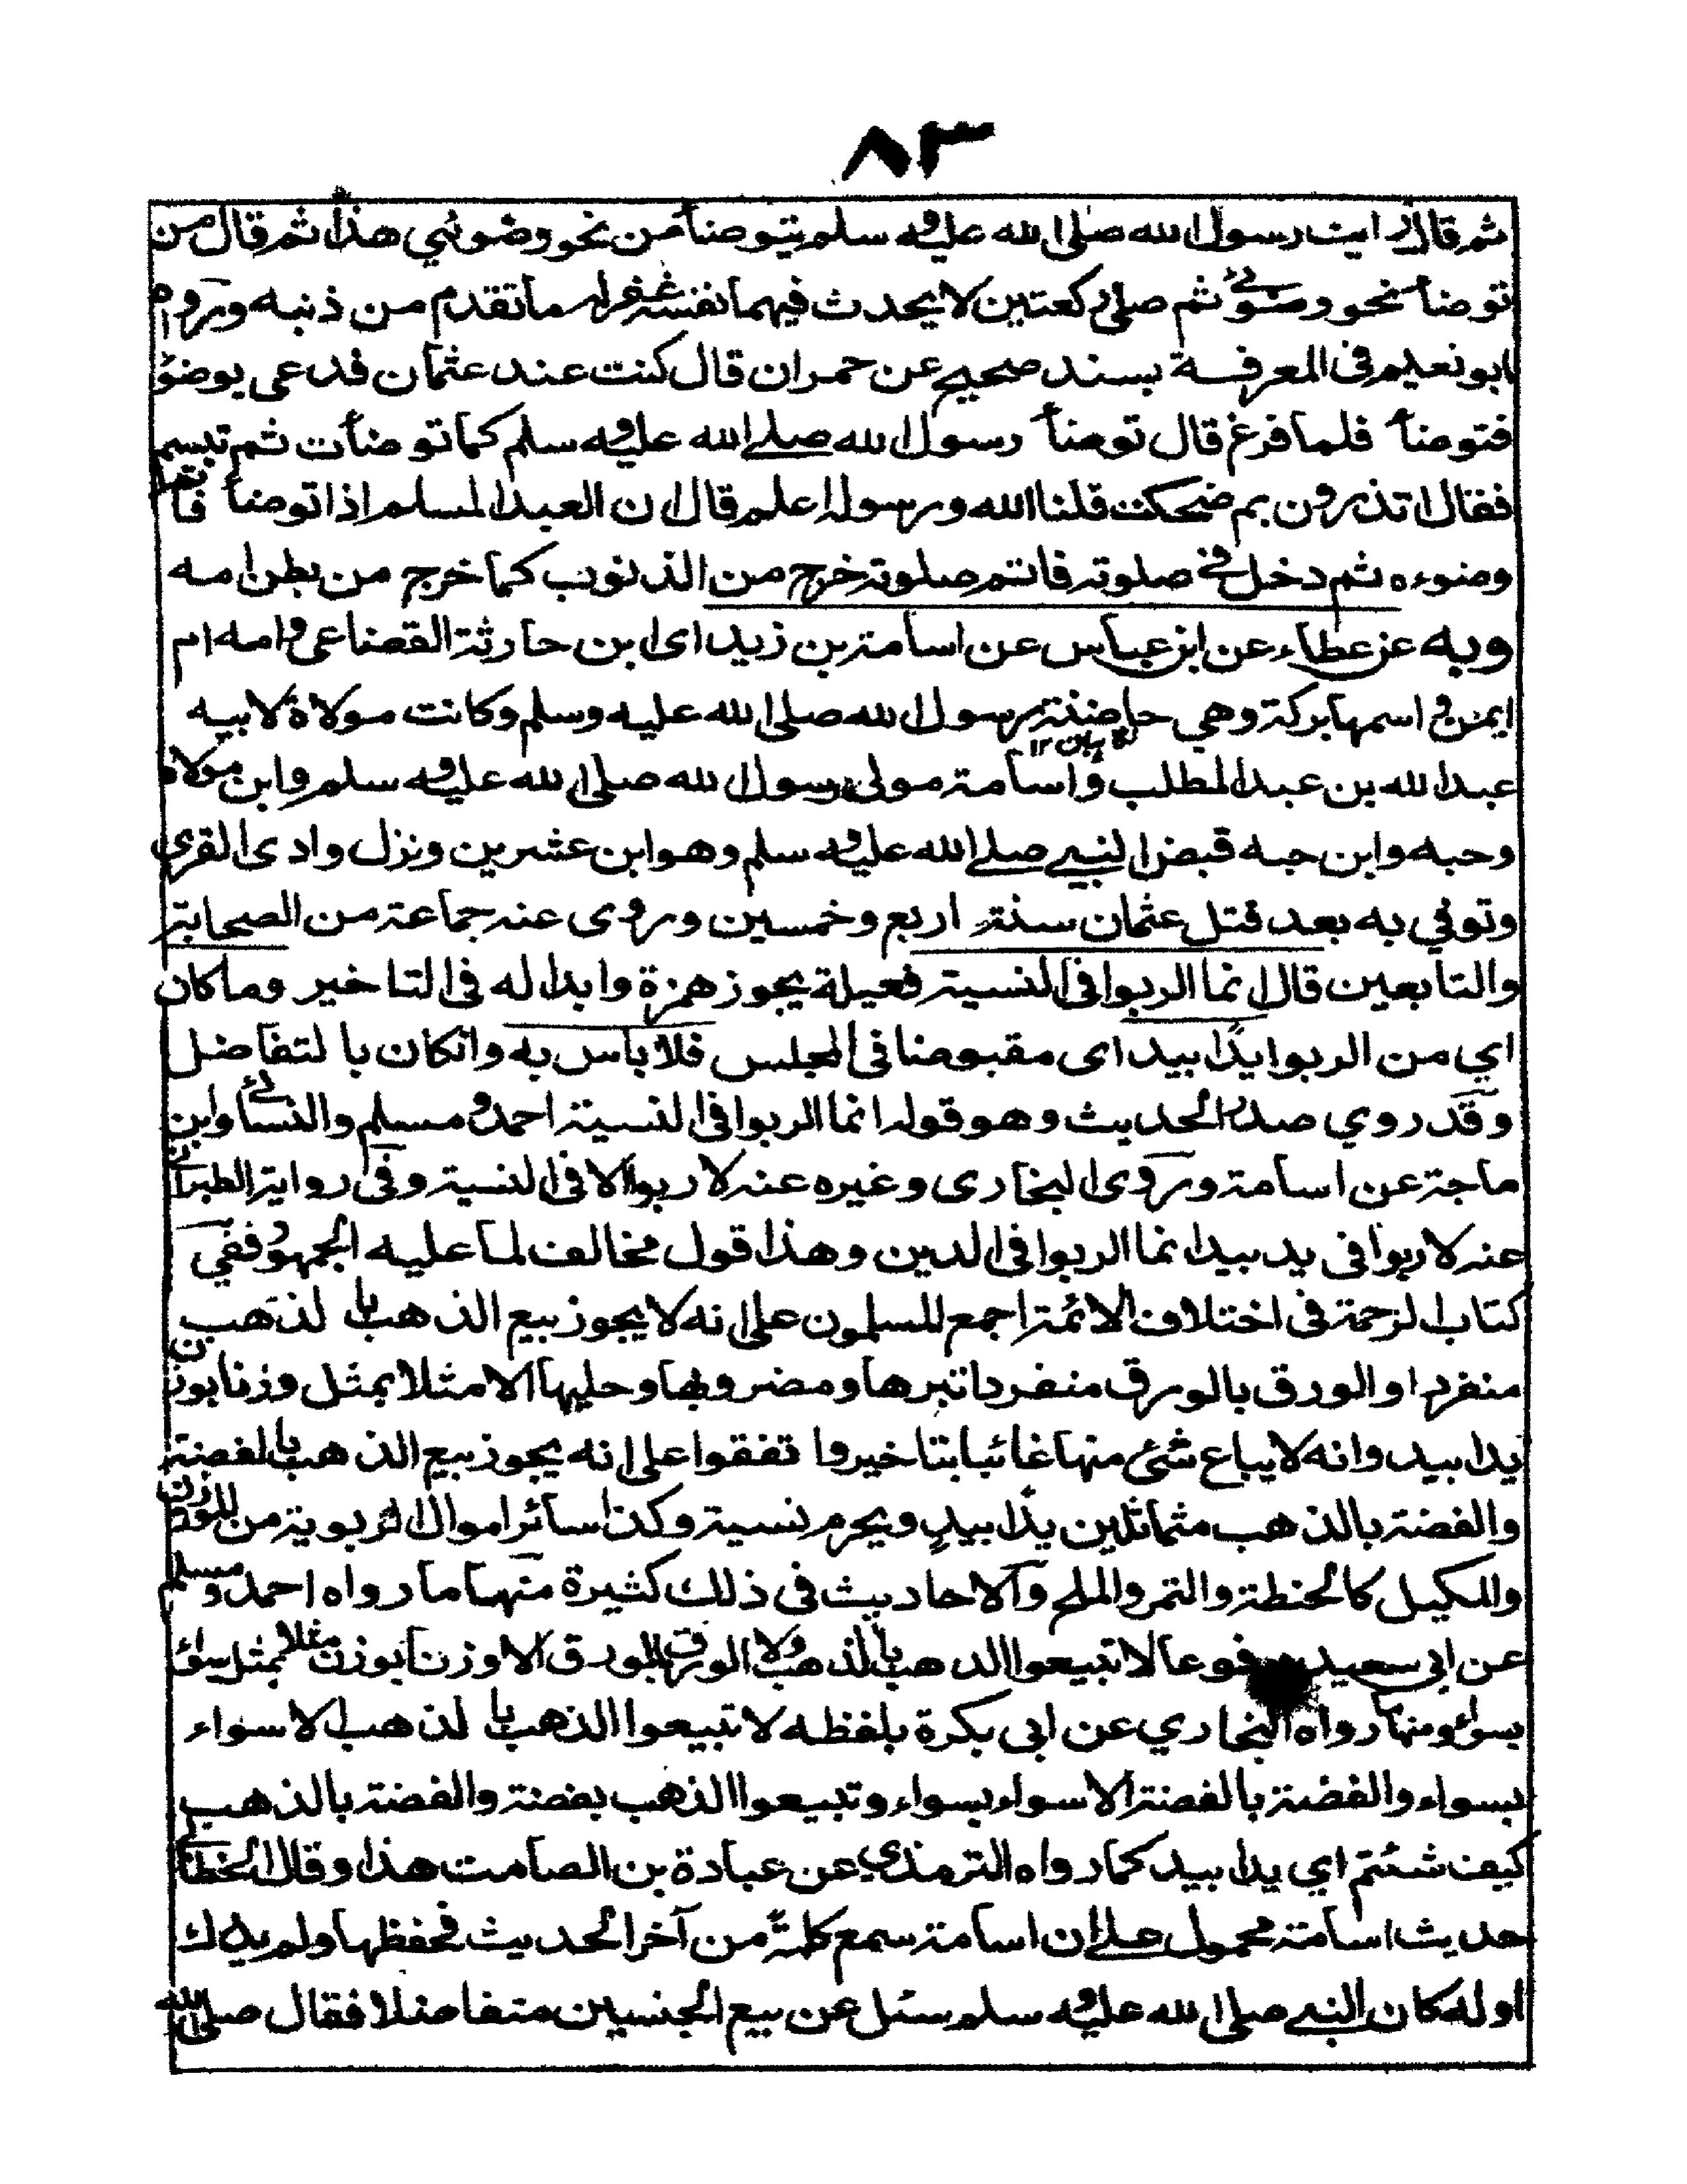 ٨٣
ثم قال رايت رسول الله صلى الله عليه وسلم يتوضأ من نحو وضوئي هذا ثم قال من
توضأ نحو وضوئي ثم صلى ركعتين لا يحدث فيهما نفسه غفر له ما تقدم من ذنبه وروى
ابو نعيم فى المعرفة بسند صحيح عن حمران قال كنت عند عثمان فدعى بوضؤ
فتوضأ فلما فرغ قال توضأ رسول الله صلى الله عليه وسلم كما توضأت ثم تبسم
فقال اتدرون بم ضحكت قلنا الله ورسوله اعلم قال ان العبد المسلم اذا توضأ فاتم
وضوءه ثم دخل في صلوته فاتم صلوته خرج من الذنوب كما خرج من بطن امه
وبه عن عطاء عن ابن عباس عن اسامة بن زيد اى ابن حارثة القضاعى وامه ام
ايمن واسمها بركة وهي حاضنة رسول الله صلى الله عليه وسلم وكانت مولاة لابيه
عبد الله بن عبد المطلب واسامة مولى رسول الله صلى الله عليه وسلم وابن مولاه
وحبه وابن حبه قبض النبي صلى الله عليه وسلم وهو ابن عشرين ونزل وادى القرى
وتوفي به بعد قتل عثمان سنة اربع وخمسين وروى عنه جماعة من الصحابة
والتابعين قال انما الربوا فى النسية فعيلة يجوز همزة وابداله فى التاخير وما كان
اي من الربوا يدًا بيد اى مقبوضا فى المجلس فلا باس به وانكان با لتفاضل
وقد روي صدر الحديث وهو قوله انما الربوا فى النسية احمد ومسلم والنسائي وابن
ماجة عن اسامة وروى البخارى وغيره عنه لا ربوا الا فى النسية وفى رواية الطبرانى
عنه لا ربوا فى يد بيد انما الربوا فى الدين وهذا قول مخالف لما عليه الجمهور ففي
كتاب الرحمة فى اختلاف الائمة اجمع المسلمون على انه لا يجوز بيع الذهب با لذهب
منفردا والورق بالورق منفردا تبرها ومضروبها وحليها الا مثلا بمثل وزنا بوزن
يدا بيد وانه لا يباع شئ منها غائبا بتاخير وا تفقوا على انه يجوز بيع الذهب بالفضة
والفضة بالذهب متماثلين يدًا بيدٍ ويحرم نسية وكذا سائر اموال الربوية من الموزون
والمكيل كالحنطة والتمر والملح والاحاديث فى ذلك كثيرة منها ما رواه احمد ومسلم
عن ابى سعيد مرفوعا لا تبيعوا الذهب بالذهب ولا الورق بالورق الا وزنا بوزن مثلا بمثل سواء
بسواء ومنها رواه البخاري عن ابى بكرة بلفظه لا تبيعوا الذهب با لذهب الا سواء
بسواء والفضة بالفضة الا سواء بسواء وتبيعوا الذهب بفضة والفضة بالذهب
كيف شئتم اي يدا بيد كما رواه الترمذي عن عبادة بن الصامت هذا وقال الخطابى
حديث اسامة محمول على ان اسامة سمع كلمة من آخر الحديث فحفظها ولم يدرك
اوله كان النبي صلى الله عليه وسلم سئل عن بيع الجنسين متفاضلا فقال صلى الله